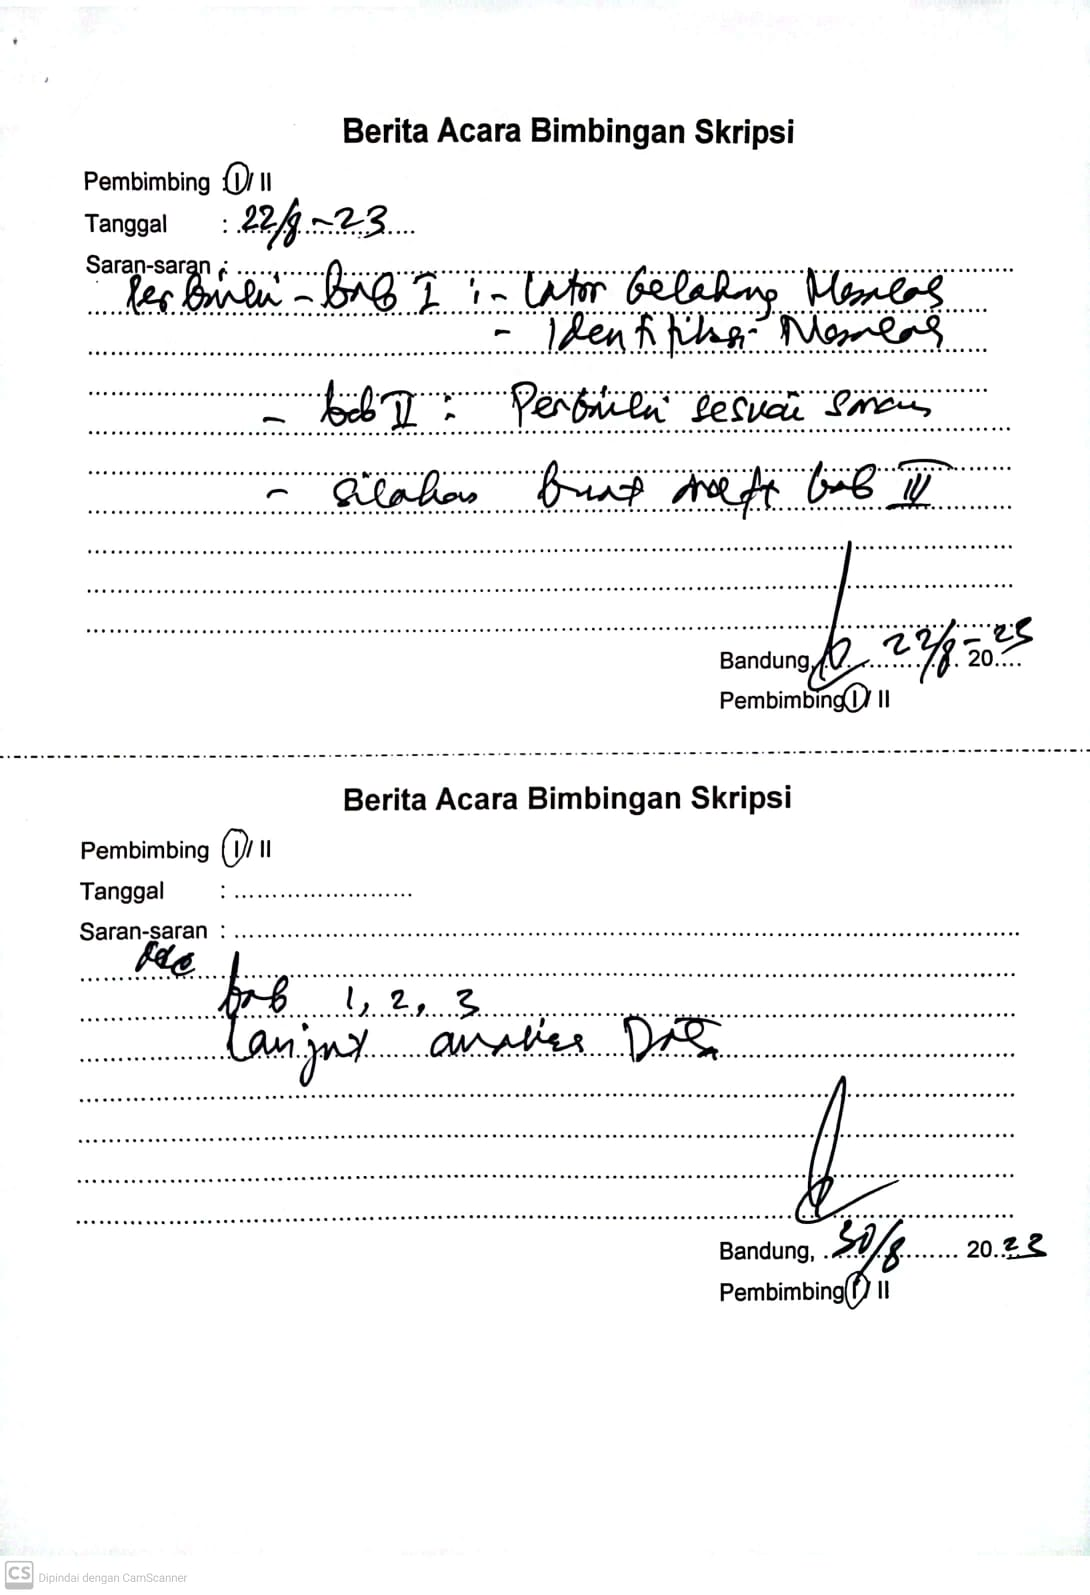 Berita Acara Bimbingan Skripsi
Pembimbing : I / II
Tanggal : 22/8 - 23
Saran-saran :
Perbaiki - bab I : - Latar belakang Masalah
- Identifikasi Masalah
- bab II : Perbaiki sesuai saran
- Silahan buat draft bab
Bandung, 22/8 - 2023
Pembimbing I / II
Berita Acara Bimbingan Skripsi
Pembimbing I / II
Tanggal :
Saran-saran :
Acc
bab 1, 2, 3
Lanjut analisa Data
Bandung, 30/8 2023
Pembimbing I / II
CS Dipindai dengan CamScanner